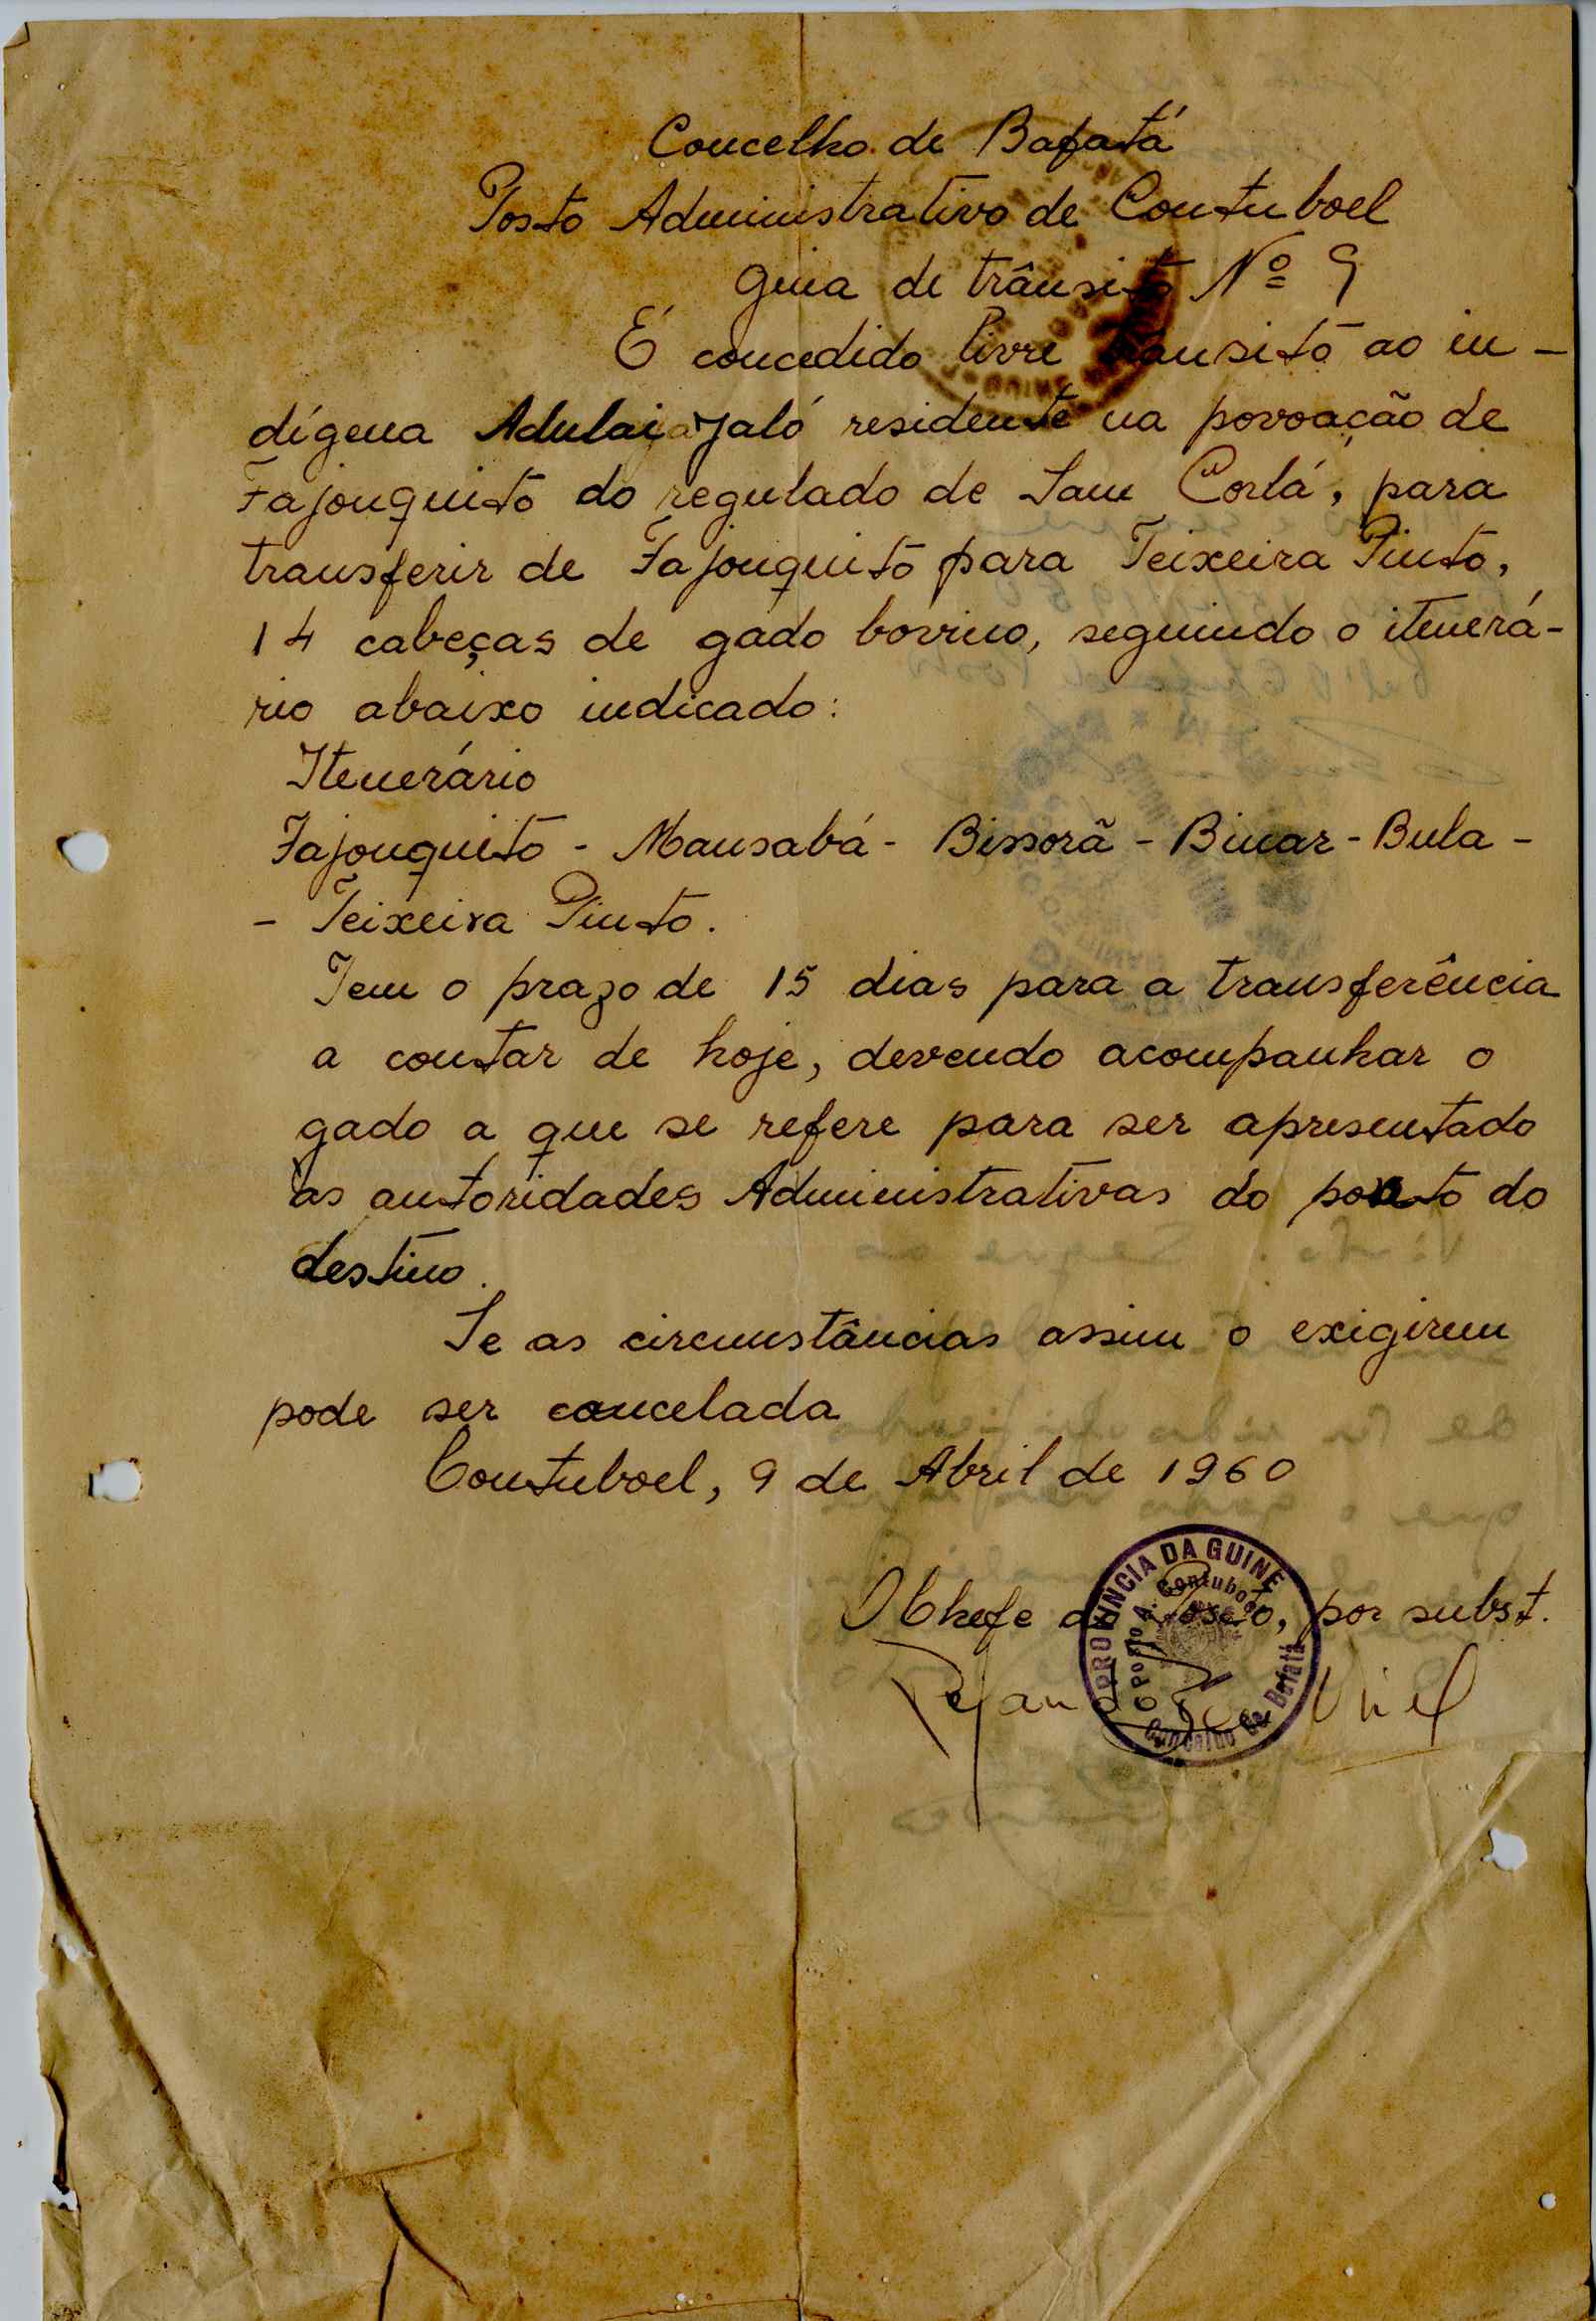 Concelho de Bafatá
Posto Administrativo de Contuboel
Guia de trânsito Nº 9
É concedido livre trânsito ao in-
dígena Adulai Jaló residente na povoação de
Fajonquito do regulado de Sam Corlá, para
transferir de Fajonquito para Teixeira Pinto,
14 cabeças de gado bovino, seguindo o itenerá-
rio abaixo indicado:
Itenerário
Fajonquito - Mansabá - Bissorã - Binar - Bula -
- Teixeira Pinto.
Tem o prazo de 15 dias para a transferência
a contar de hoje, devendo acompanhar o
gado a que se refere para ser apresentado
às autoridades Administrativas do ponto do
destino.
Se as circunstâncias assim o exigirem
pode ser cancelada
Contuboel, 9 de Abril de 1960
O Chefe do Posto, por subst.
PROVINCIA DA GUINÉ
Posto A. Contuboel
Concelho de Bafatá